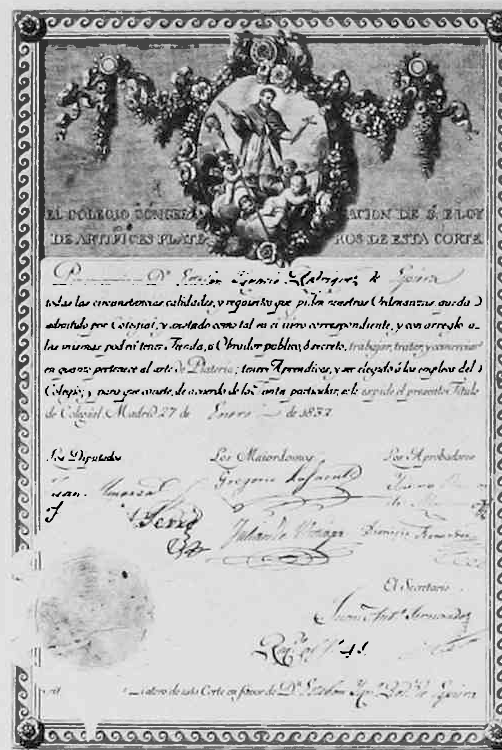 EL COLEGIO CONGREGACION DE S. ELOY
DE ARTIFICES PLATEROS DE ESTA CORTE
D.n Ignacio Rodriguez de
todas las circunstancias calidades, y requisitos que piden nuestras Ordenanzas queda
admitido por Colegial, y anotado como tal en el libro correspondiente, y con arreglo a
las mismas podrá tener Tienda, ó Obrador publico, ó secreto, trabajar, tratar, y comerciar
en quanto pertenece al arte de Plateria; tener Aprendices, y ser elegido á los empleos del
Colegio; y para que conste, de acuerdo de la Junta particular, se le expide el presente Titulo
de Colegial. Madrid 27 de Enero de 1832
Los Diputados
Los Maiordomos
Los Aprobadores
Gregorio
Julian de
Dionisio
El Secretario
Juan Ant.o Fernandez
Platero de esta Corte en favor de D.n Esteban Ign.o